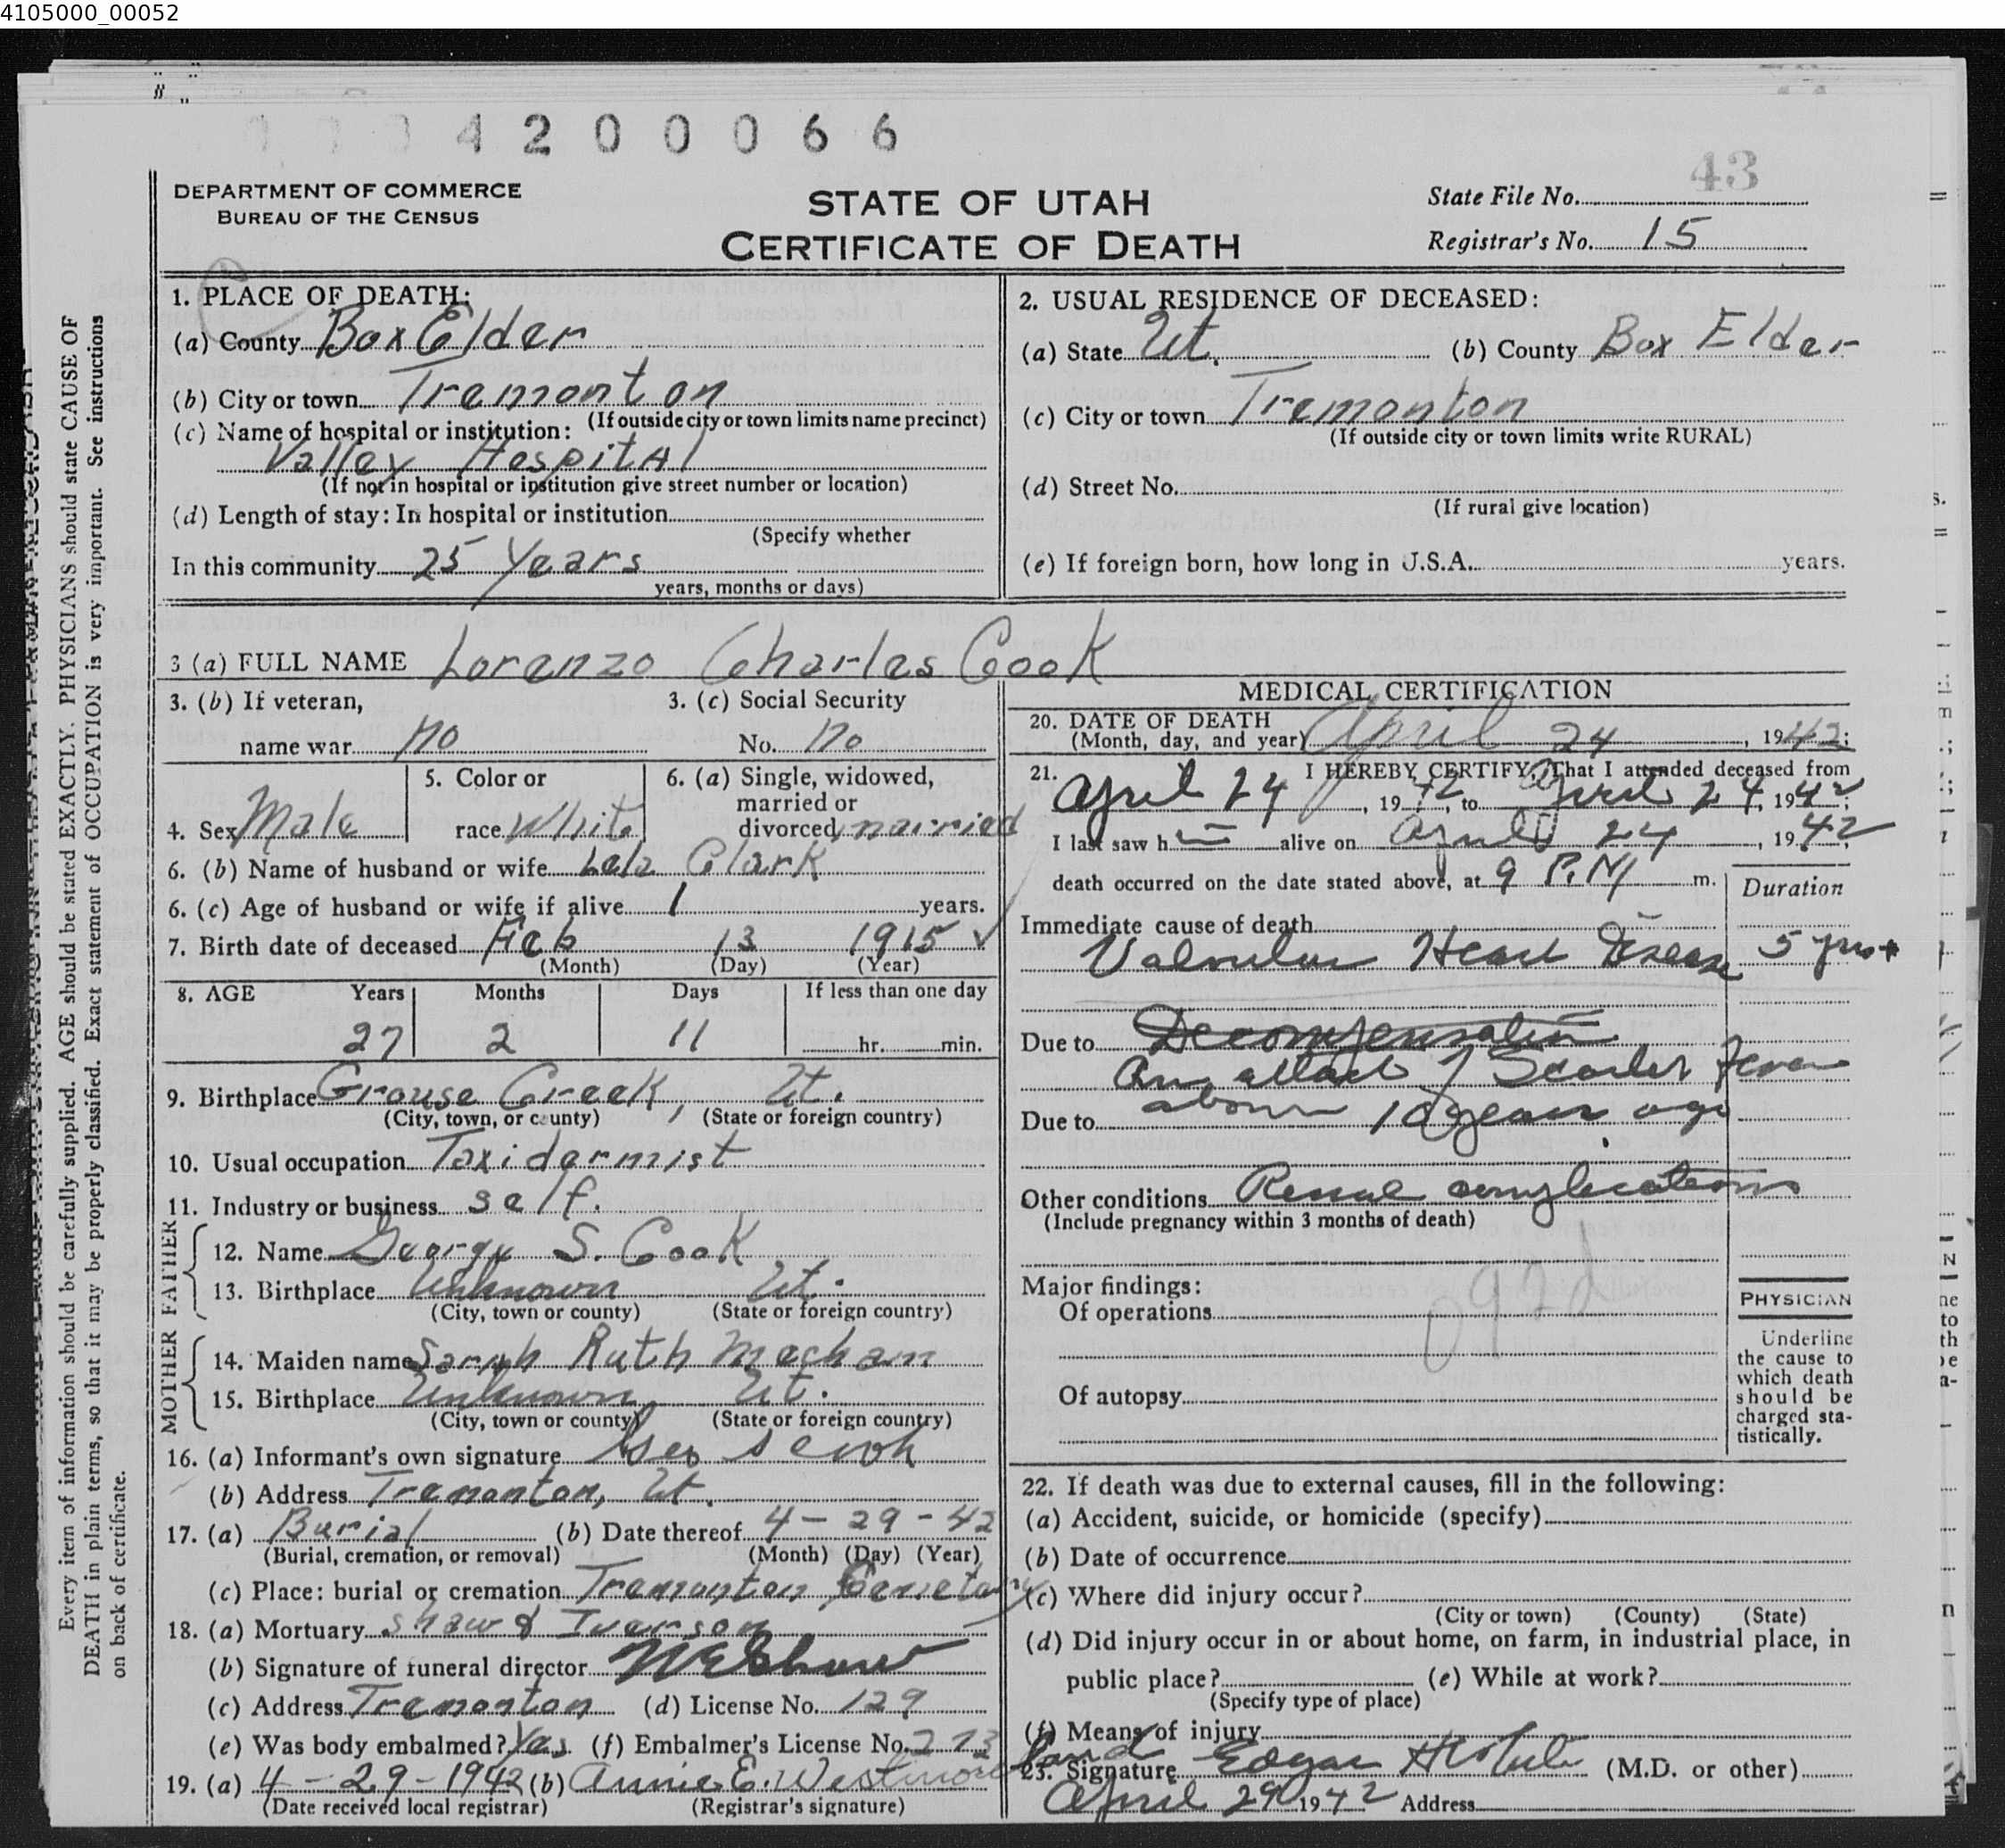 4105000_00052
4 2 0 0 0 6 6
43
DEPARTMENT OF COMMERCE
BUREAU OF THE CENSUS
STATE OF UTAH
CERTIFICATE OF DEATH
State File No.
Registrar's No. 15
1. PLACE OF DEATH:
(a) County Box Elder
(b) City or town Tremonton
(If outside city or town limits name precinct)
(c) Name of hospital or institution:
Valley Hospital
(If not in hospital or institution give street number or location)
(d) Length of stay: In hospital or institution
(Specify whether
In this community 25 Years
years, months or days)
2. USUAL RESIDENCE OF DECEASED:
(a) State Ut. (b) County Box Elder
(c) City or town Tremonton
(If outside city or town limits write RURAL)
(d) Street No.
(If rural give location)
(e) If foreign born, how long in U.S.A. years.
3 (a) FULL NAME Lorenzo Charles Cook
3. (b) If veteran,
name war no
3. (c) Social Security
No. no
4. Sex Male
5. Color or
race White
6. (a) Single, widowed,
married or
divorced married
6. (b) Name of husband or wife Lela Clark
6. (c) Age of husband or wife if alive years.
7. Birth date of deceased Feb 13 1915
(Month) (Day) (Year)
8. AGE Years Months Days If less than one day
27 2 11 hr. min.
9. Birthplace Grouse Creek, Ut.
(City, town, or county) (State or foreign country)
10. Usual occupation Taxidermist
11. Industry or business self.
FATHER
12. Name George S. Cook
13. Birthplace Unknown Ut.
(City, town or county) (State or foreign country)
MOTHER
14. Maiden name Sarah Ruth Mecham
15. Birthplace Unknown Ut.
(City, town or county) (State or foreign country)
16. (a) Informant's own signature Geo S Cook
(b) Address Tremonton, Ut.
17. (a) Burial (b) Date thereof 4-29-42
(Burial, cremation, or removal) (Month) (Day) (Year)
(c) Place: burial or cremation Tremonton Cemetary
18. (a) Mortuary Shaw & Iverson
(b) Signature of funeral director W E Shaw
(c) Address Tremonton (d) License No. 129
(e) Was body embalmed? Yes (f) Embalmer's License No. 273
19. (a) 4-29-1942 (b) Annie E. Westmoreland
(Date received local registrar) (Registrar's signature)
MEDICAL CERTIFICATION
20. DATE OF DEATH
(Month, day, and year) April 24, 1942;
21. I HEREBY CERTIFY, That I attended deceased from
April 24, 1942, to April 24, 1942;
I last saw h alive on April 24, 1942
death occurred on the date stated above, at 9 P.M m.
Duration
Immediate cause of death
Valvular Heart Disease 5 yrs+
Due to Decompensation
An attack of Scarlet Fever
Due to about 10 years ago
Other conditions Renal complications
(Include pregnancy within 3 months of death)
092d
Major findings:
Of operations
Of autopsy
PHYSICIAN
Underline
the cause to
which death
should be
charged sta-
tistically.
22. If death was due to external causes, fill in the following:
(a) Accident, suicide, or homicide (specify)
(b) Date of occurrence
(c) Where did injury occur?
(City or town) (County) (State)
(d) Did injury occur in or about home, on farm, in industrial place, in
public place? (e) While at work?
(Specify type of place)
(f) Means of injury
23. Signature Edgar (M.D. or other)
April 29 1942 Address
Every item of information should be carefully supplied. AGE should be stated EXACTLY. PHYSICIANS should state CAUSE OF
DEATH in plain terms, so that it may be properly classified. Exact statement of OCCUPATION is very important. See instructions
on back of certificate.